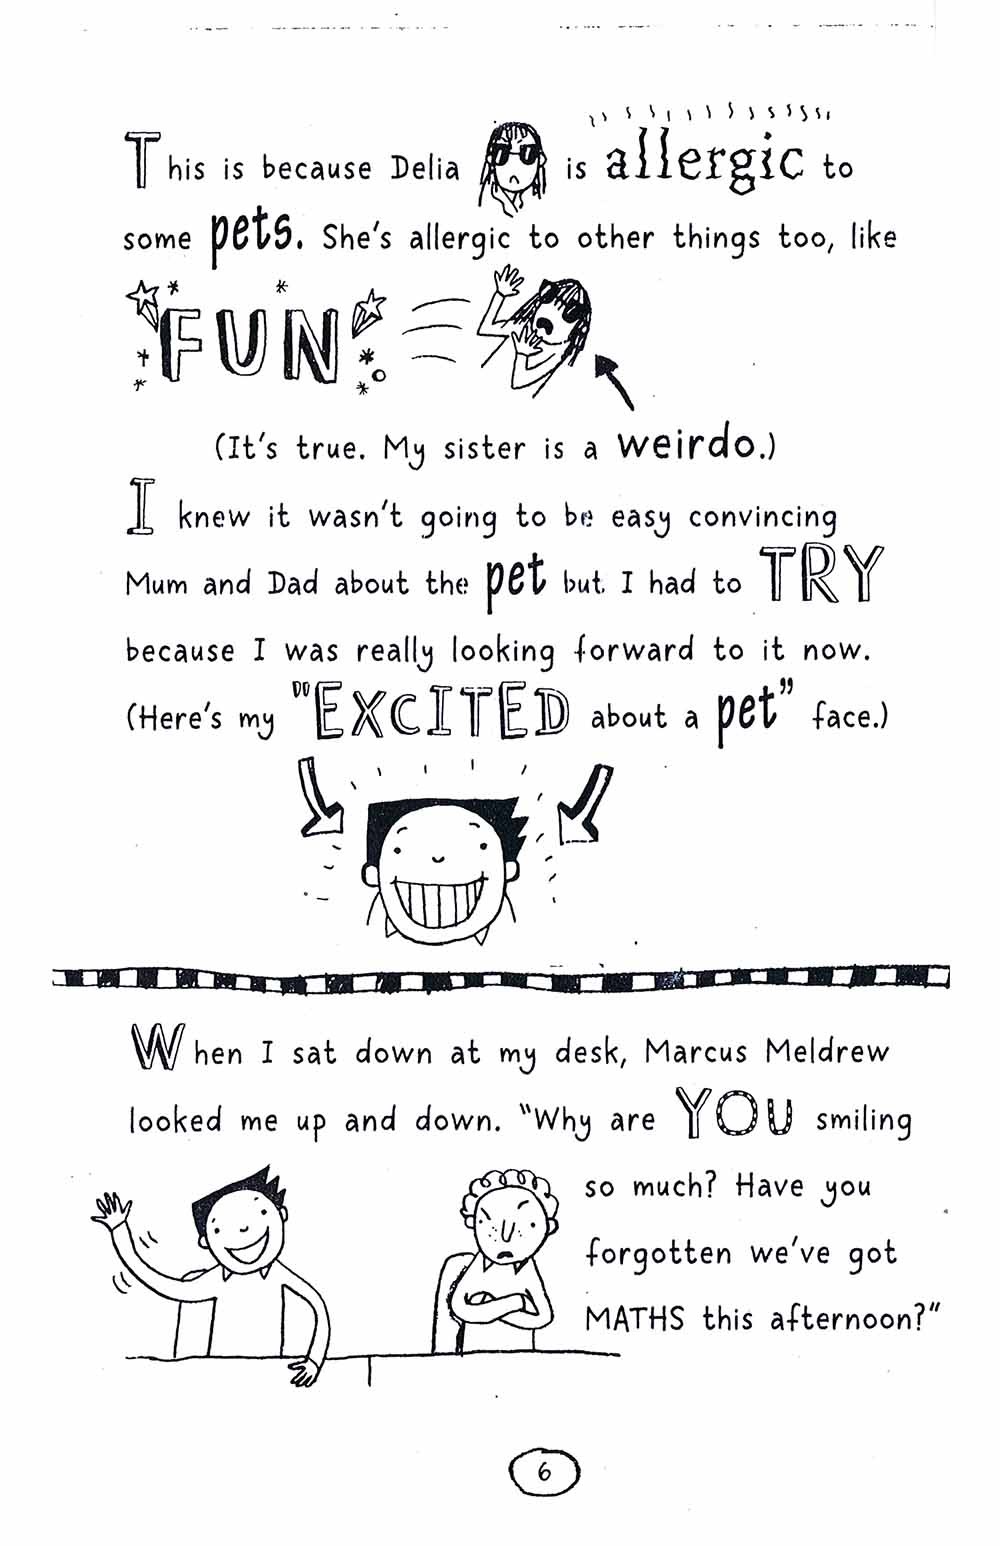 This is because Delia is allergic to
some pets. She's allergic to other things too, like
FUN.
(It's true. My sister is a weirdo.)
I knew it wasn't going to be easy convincing
Mum and Dad about the pet but I had to TRY
because I was really looking forward to it now.
(Here's my "EXCITED about a pet" face.)
When I sat down at my desk, Marcus Meldrew
looked me up and down. "Why are YOU smiling
so much? Have you
forgotten we've got
MATHS this afternoon?"
6